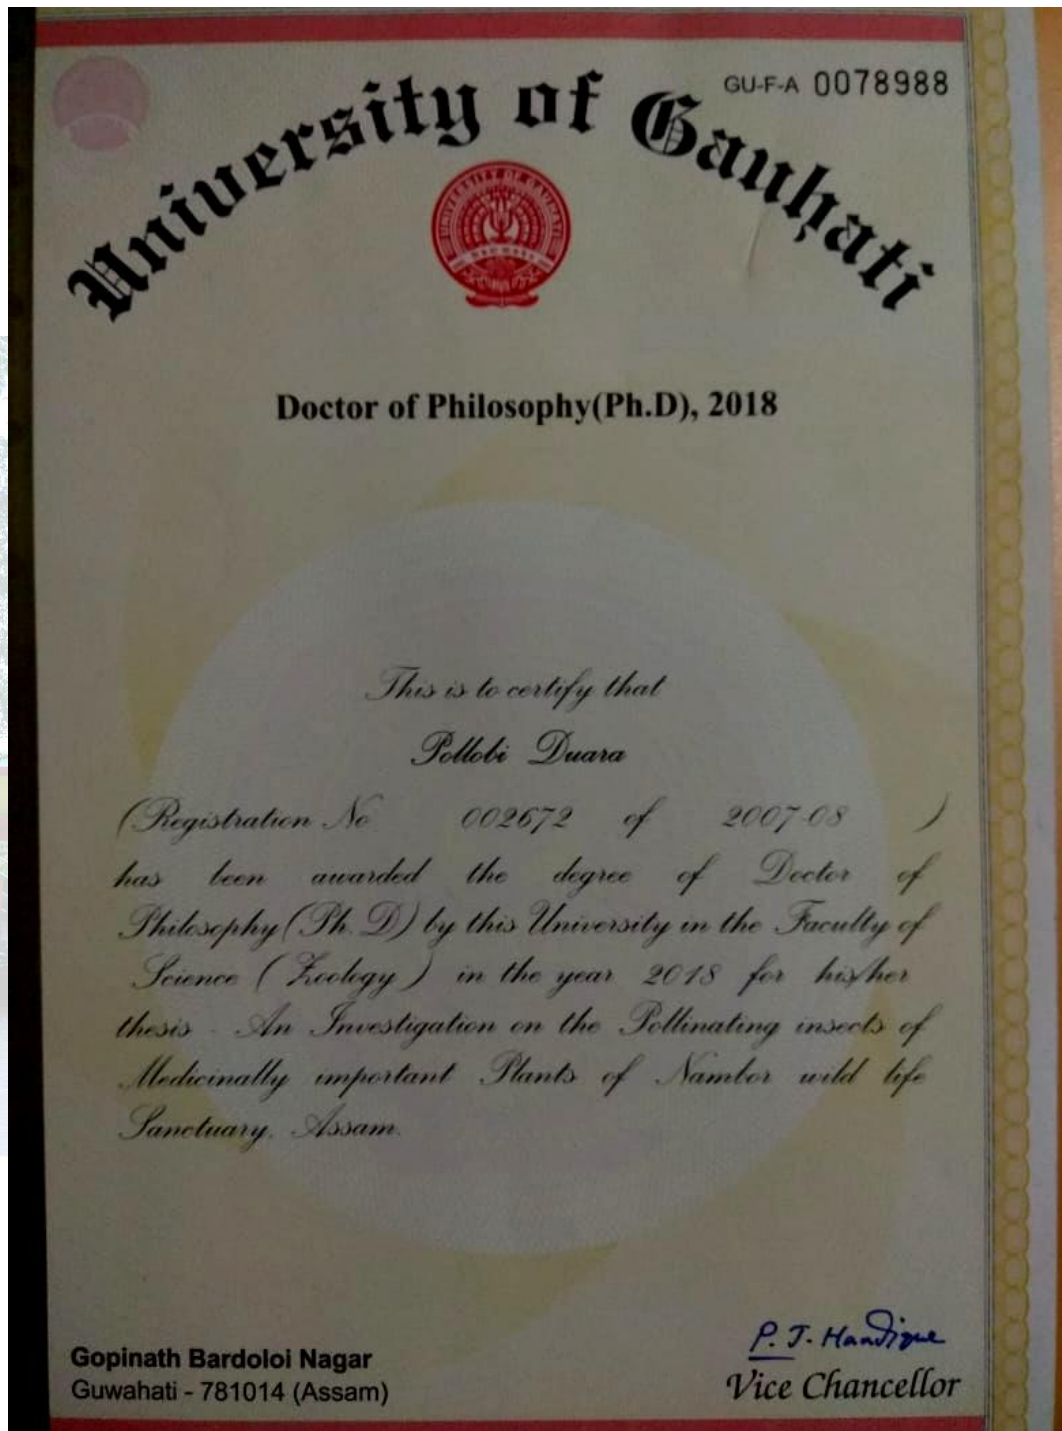 GU-F-A 0078988
University of Gauhati
UNIVERSITY OF GAUHATI
Doctor of Philosophy(Ph.D), 2018
This is to certify that
Pollobi Duara
(Registration No 002672 of 2007-08 )
has been awarded the degree of Doctor of
Philosophy (Ph. D) by this University in the Faculty of
Science ( Zoology ) in the year 2018 for his/her
thesis - An Investigation on the Pollinating insects of
Medicinally important Plants of Nambor wild life
Sanctuary, Assam.
P. J. Handique
Gopinath Bardoloi Nagar
Guwahati - 781014 (Assam)
Vice Chancellor